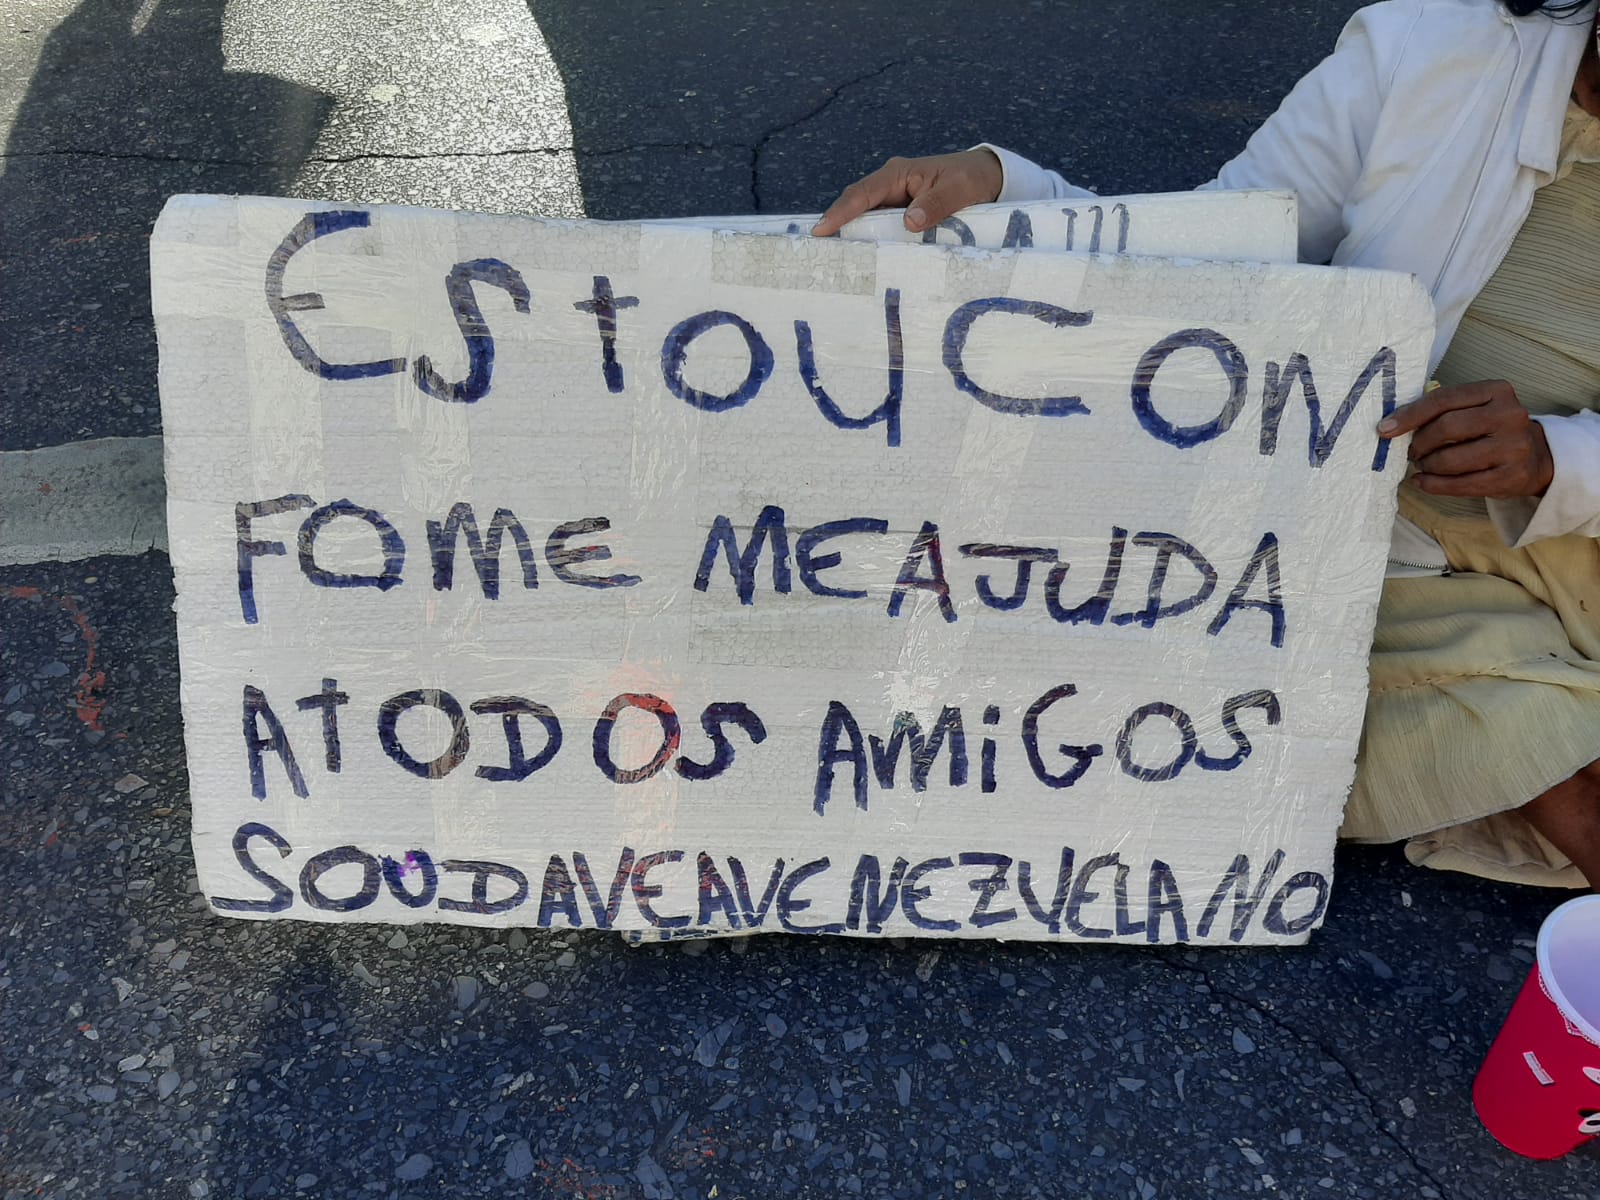 DA!!!
EStOU COM
FOME ME AJUDA
A tODOS AMiGOS
SOU DAVEAVENEZUELANO